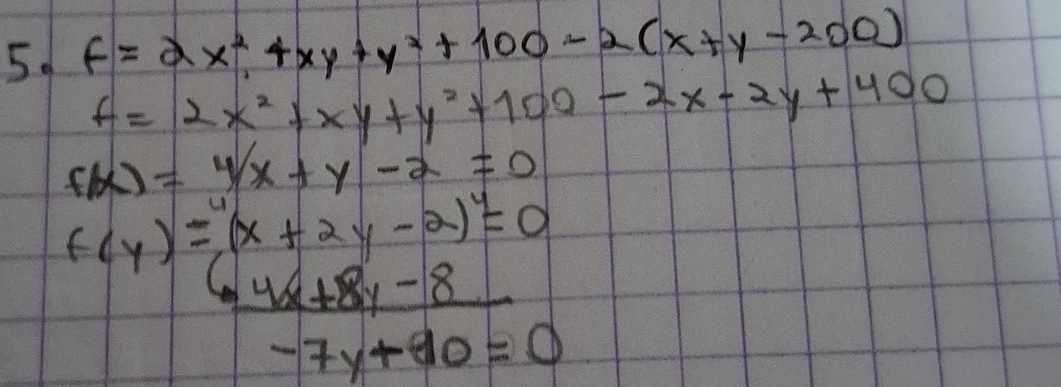 5. f = 2x² + xy + y² + 100 - 2(x+y-200)
f = 2x² + xy + y² + 100 - 2x - 2y + 400
f(x) = 4x + y - 2 = 0
f(y) = 4(x + 2y - 2)4 = 0
4x + 8y - 8
-7y + 10 = 0